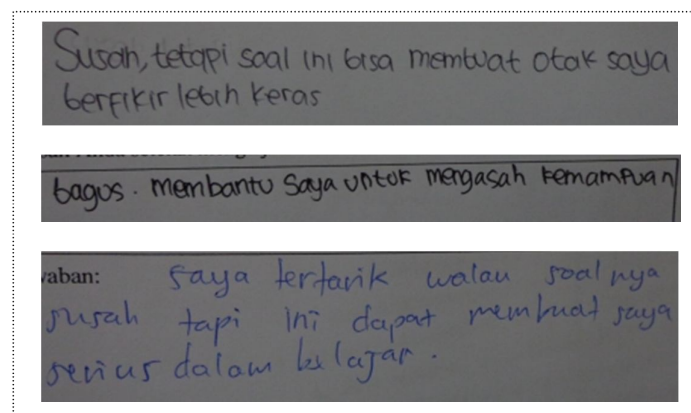 Susah, tetapi soal ini bisa membuat otak saya
berfikir lebih keras
bagus. membantu saya untuk mengasah kemampuan
vaban: saya tertarik walau soalnya
susah tapi ini dapat membuat saya
serius dalam belajar.